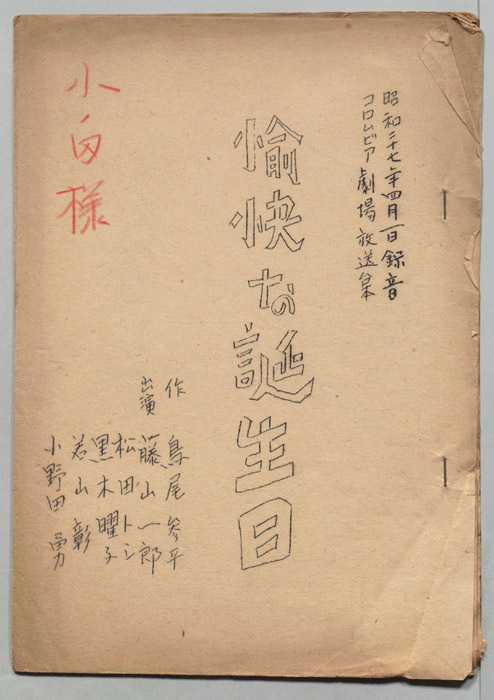 昭和二十七年四月一日録音
コロムビア劇場放送台本
愉快な誕生日
作 鳥尾参平
出演 藤山一郎
松田トシ
黒木曜子
若山彰
小野田勇
小白様